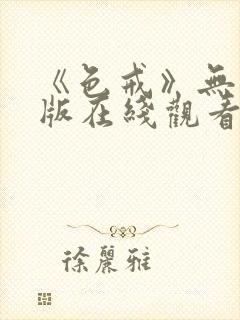 《色戒》無
版在綫觀看
徐麗雅